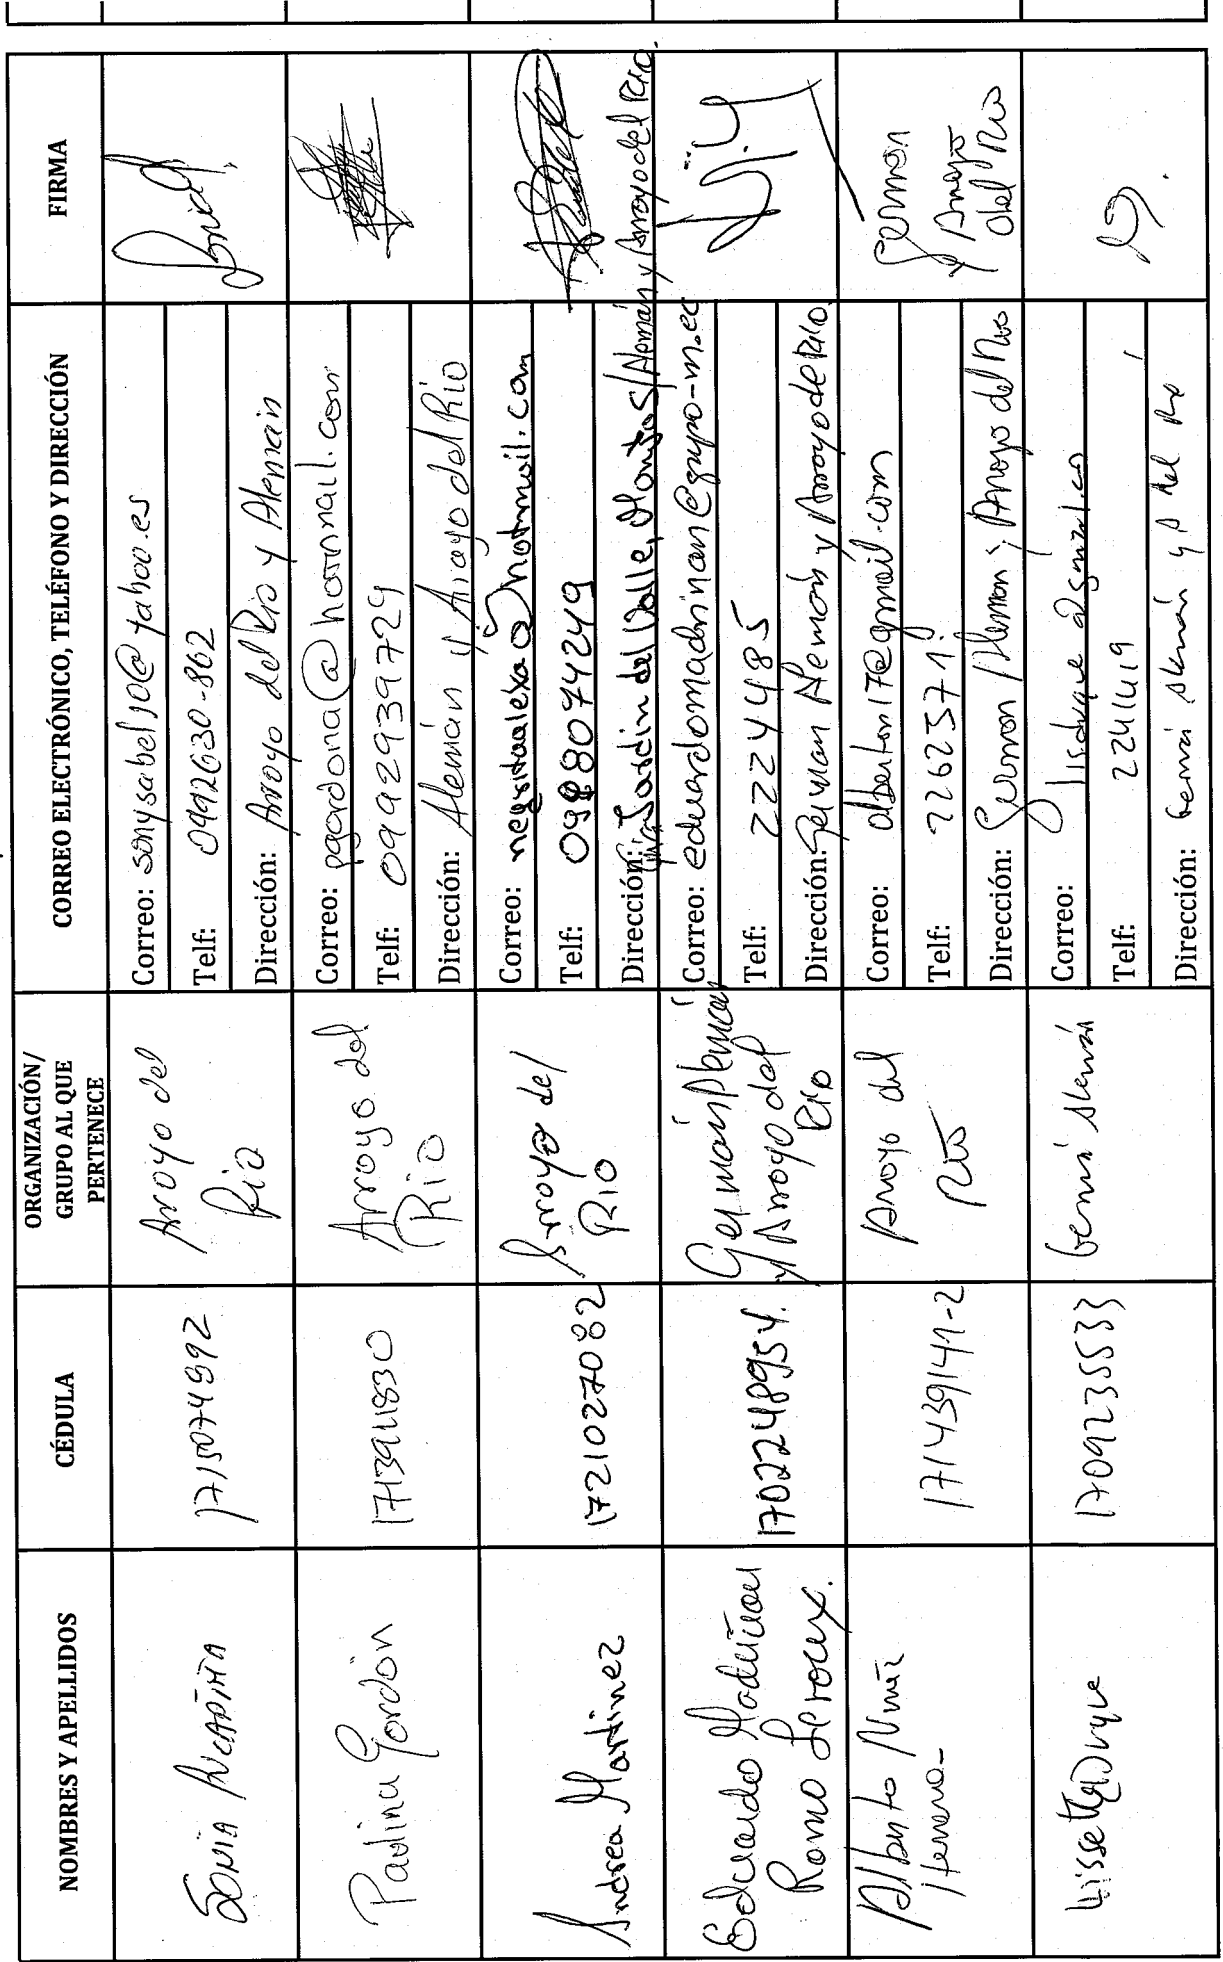 NOMBRES Y APELLIDOS
CÉDULA
ORGANIZACIÓN/
GRUPO AL QUE
PERTENECE
CORREO ELECTRÓNICO, TELÉFONO Y DIRECCIÓN
FIRMA
SONIA
1715074992
Arroyo del
Rio
Correo: sonysabel10@yahoo.es
Telf: 0992630-862
Dirección: Arroyo del Rio y Alemán
Paulina Gordón
1713911830
Arroyo del
Rio
Correo: pgordona@hotmail.com
Telf: 0992939729
Dirección: Alemán y Arroyo del Rio
Andrea Martinez
1721027082
Arroyo del
RIO
Correo: negritaalexa@hotmail.com
Telf: 0988074249
Dirección: Jardin del Valle, Monjas/Alemán y Arroyo del Rio.
Eduardo Madriñan
Romo Leroux.
1702248954.
German Alemán
y Arroyo del
Rio
Correo: eduardomadrinan@grupo-m.ec
Telf: 2224485
Dirección: German Alemán y Arroyo del Rio.
Alberto
171439141-2
Arroyo del
Rio
Correo: alberton17@gmail.com
Telf: 2262571
Dirección: German Aleman y Arroyo del Rio
German
y Arroyo
del Rio
Lissette Duque
1709235533
Germán Alemán
Correo:
Telf: 2241419
Dirección: Germán Alemán y A del Rio